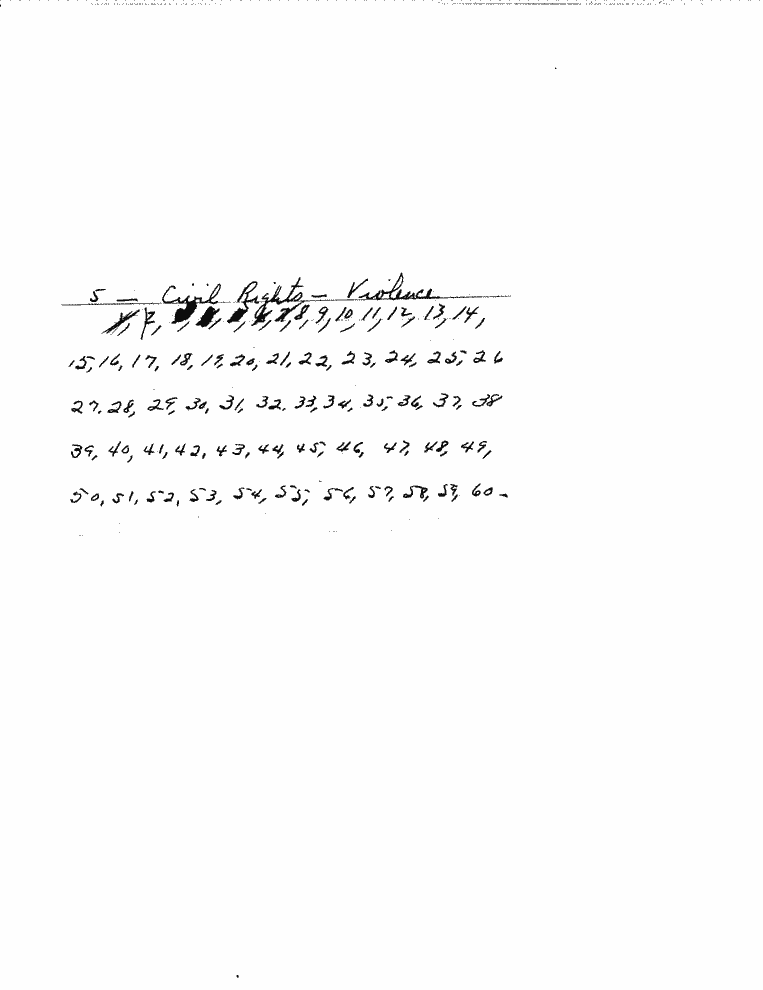 5 – Civil Rights – Violence
8, 9, 10, 11, 12, 13, 14,
15, 16, 17, 18, 19, 20, 21, 22, 23, 24, 25, 26
27, 28, 29, 30, 31, 32, 33, 34, 35, 36, 37, 38
39, 40, 41, 42, 43, 44, 45, 46, 47, 48, 49,
50, 51, 52, 53, 54, 55, 56, 57, 58, 59, 60 –